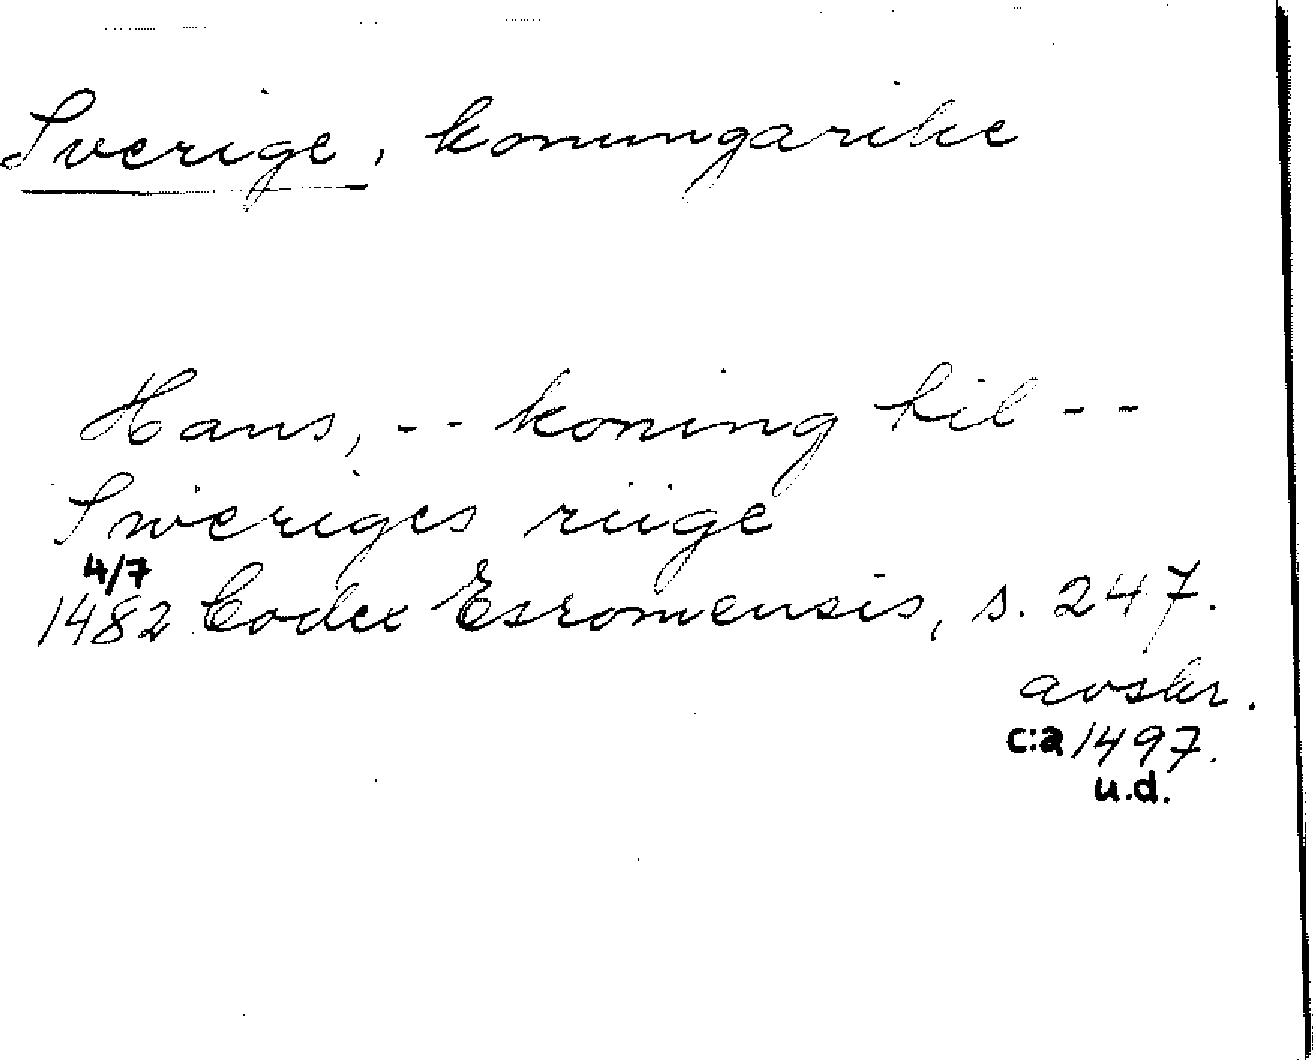 Sverige, konungarike
Hans, -- koning til --
Sweriges riige
4/7
1482 Codex Esromensis, s. 247.
avskr.
c:a 1497.
u.d.